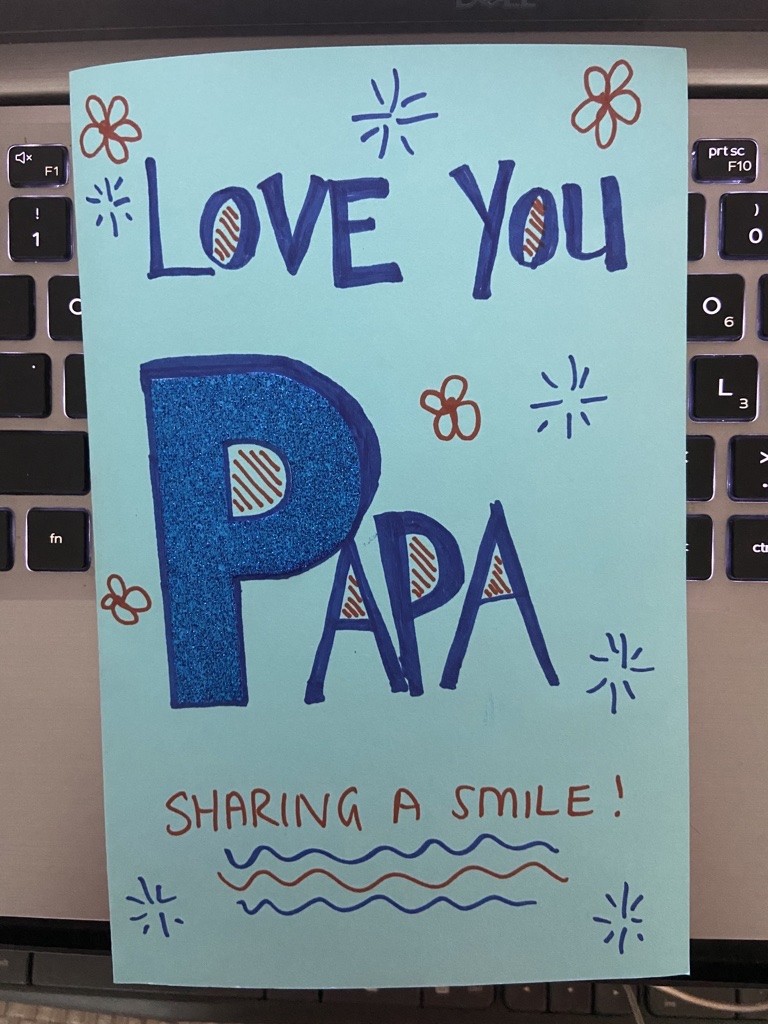 DELL
LOVE YOU
PAPA
SHARING A SMILE!
F1
prt sc
F10
!
1
)
0
O
6
L
3
fn